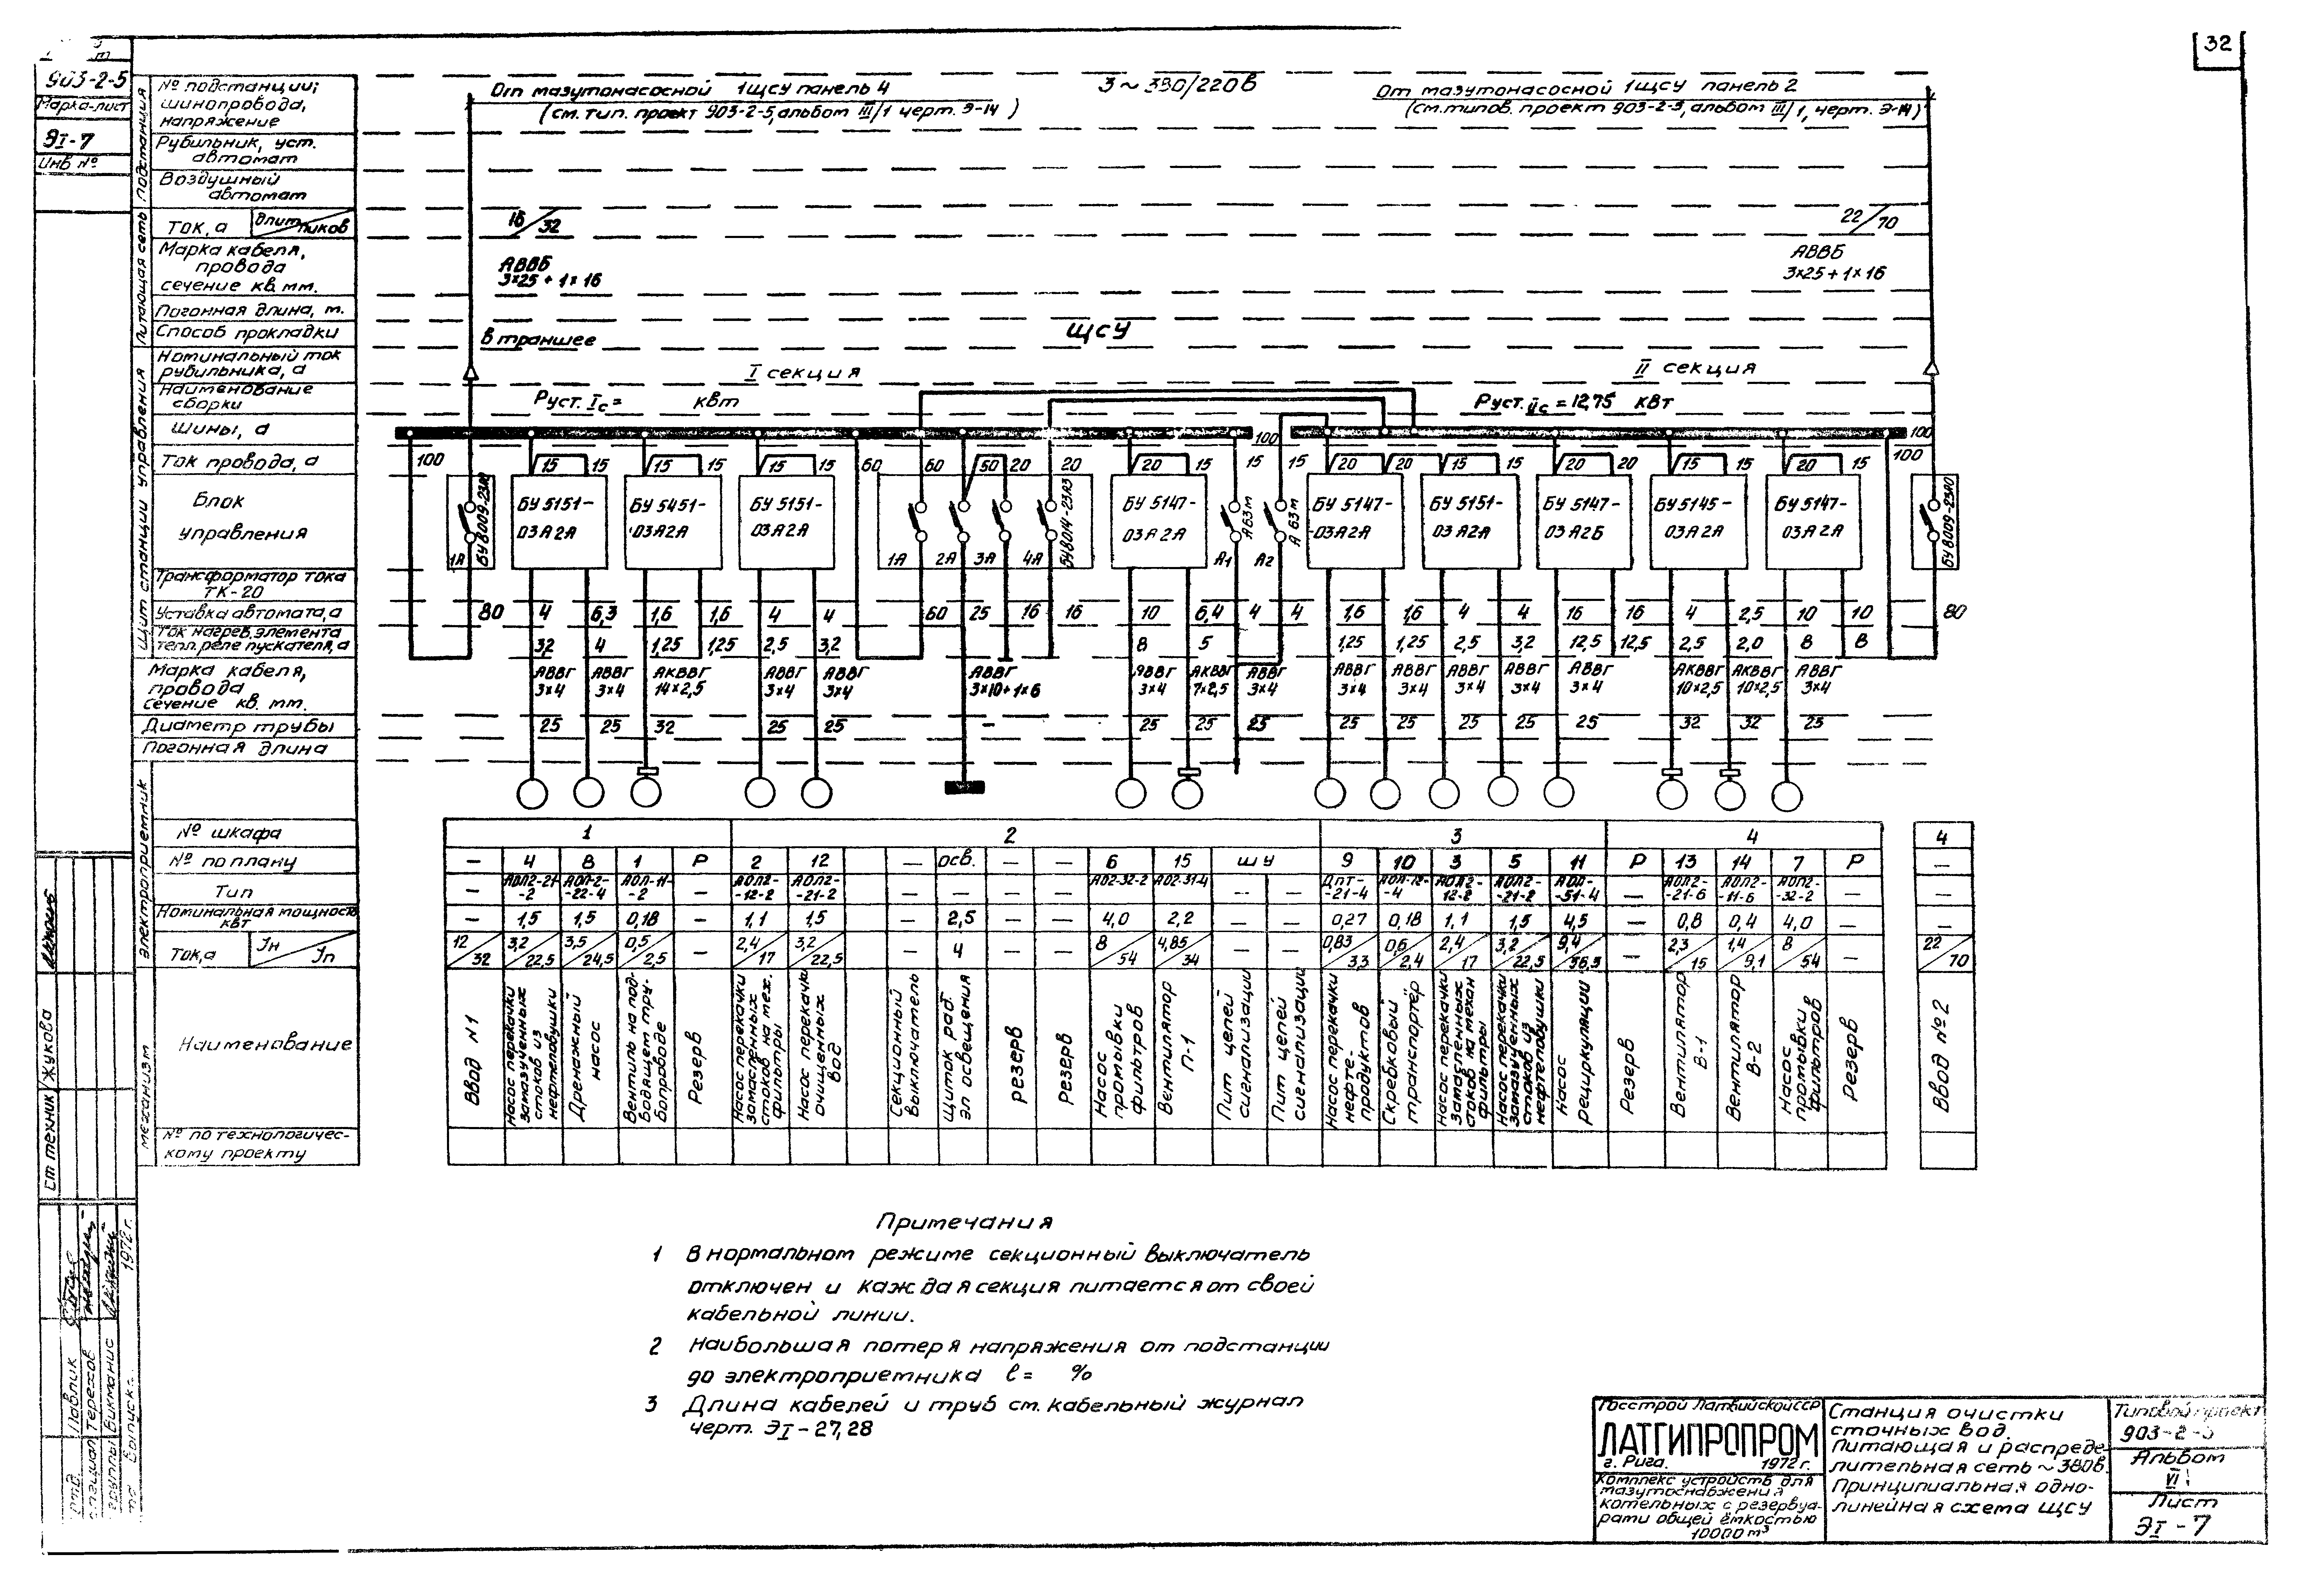 32
903-2-5
Марка-лист
ЭI-7
Инв №
подстанция
Питающая сеть
Щит станции управления
электроприемник
механизм
№ подстанции;
шинопровода,
напряжение
Рубильник, уст.
автомат
Воздушный
автомат
Ток, а длит пиков
Марка кабеля,
провода
сечение кв. мм.
Погонная длина, м.
Способ прокладки
Номинальный ток
рубильника, а
Наименование
сборки
Шины, а
Ток провода, а
Блок
управления
Трансформатор тока
ТК-20
Уставка автомата, а
Ток нагрев. элемента
тепл. реле пускателя, а
Марка кабеля,
провода
сечение кв. мм.
Диаметр трубы
Погонная длина
От мазутонасосной 1ЩСУ панель 4
(См. тип. проект 903-2-5, альбом III/1 черт. Э-14)
3~380/220в
От мазутонасосной 1ЩСУ панель 2
(см. типов. проект 903-2-5, альбом III/1, черт. Э-14)
16/32
22/70
АВВБ
3×25+1×16
АВВБ
3×25+1×16
в траншее
ЩСУ
I секция
II секция
Руст. Iс= квт
Руст. IIс=12,75 квт
100 100
100 15 15 15 15 15 15 60 60 50 20 20 20 15 15 15 20 20 15 15 20 20 15 15 20 15 100
1А БУ8009-23А0
БУ5151-
03А2А
БУ5451-
03А2А
БУ5151-
03А2А
1А 2А 3А 4А БУ8014-23А3
БУ5147-
03А2А
А1 А63м
А2 А63м
БУ5147-
-03А2А
БУ5151-
03А2А
БУ5147-
03А2Б
БУ5145-
03А2А
БУ5147-
03А2А
БУ8009-23А0
80 4 6,3 1,6 1,6 4 4 60 25 16 16 10 6,4 4 4 1,6 1,6 4 4 16 16 4 2,5 10 10 80
32 4 1,25 1,25 2,5 3,2 8 5 1,25 1,25 2,5 3,2 12,5 12,5 2,5 2,0 8 8
АВВГ АВВГ АКВВГ АВВГ АВВГ АВВГ АВВГ АКВВГ АВВГ АВВГ АВВГ АВВГ АВВГ АВВГ АКВВГ АКВВГ АВВГ
3×4 3×4 14×2,5 3×4 3×4 3×10+1×6 3×4 7×2,5 3×4 3×4 3×4 3×4 3×4 3×4 10×2,5 10×2,5 3×4
25 25 32 25 25 – 25 25 25 25 25 25 25 25 32 32 25
№ шкафа 1 2 3 4 4
№ по плану – 4 8 1 Р 2 12 – осв. – – 6 15 ШУ 9 10 3 5 11 Р 13 14 7 Р –
Тип – АОЛ2-21-2 АОЛ-2-22-4 АОЛ-11-2 – АОЛ2-12-2 АОЛ2-21-2 – – – – АО2-32-2 АО2-31-4 – – Дпт-21-4 АОЛ-12-4 АОЛ2-12-2 АОЛ2-21-2 АОЛ-51-4 – АОЛ2-21-6 АОЛ2-11-6 АОЛ2-32-2 – –
Номинальная мощность
квт – 1,5 1,5 0,18 – 1,1 1,5 – 2,5 – – 4,0 2,2 – – 0,27 0,18 1,1 1,5 4,5 – 0,8 0,4 4,0 – –
Ток, а Iн/Iп 12/32 3,2/22,5 3,5/24,5 0,5/2,5 – 2,4/17 3,2/22,5 – 4 – – 8/54 4,85/34 – – 0,83/3,3 0,6/2,4 2,4/17 3,2/22,5 9,4/56,5 – 2,3/15 1,4/9,1 8/54 – 22/70
Наименование
Ввод №1
Насос перекачки
замазученных
стоков из
нефтеловушки
Дренажный
насос
Вентиль на под-
водящем тру-
бопроводе
Резерв
Насос перекачки
замасленных
стоков на мех.
фильтры
Насос перекачки
очищенных
вод
Секционный
выключатель
Щиток раб.
эл освещения
резерв
резерв
Насос
промывки
фильтров
Вентилятор
П-1
Пит цепей
сигнализации
Пит цепей
сигнализации
Насос перекачки
нефте-
продуктов
Скребковый
транспортёр
Насос перекачки
замасленных
стоков на механ
фильтры
Насос перекачки
замазученных
стоков из
нефтеловушки
Насос
рециркуляции
Резерв
Вентилятор
В-1
Вентилятор
В-2
Насос
промывки
фильтров
Резерв
Ввод №2
№ по технологичес-
кому проекту
Примечания
1 В нормальном режиме секционный выключатель
отключен и каждая секция питается от своей
кабельной линии.
2 Наибольшая потеря напряжения от подстанции
до электроприемника ℓ= %
3 Длина кабелей и труб см. кабельный журнал
черт. ЭI-27,28
Ст техник Жукова
Павлик
Терехов
Викманис
1972г.
Госстрой Латвийской ССР
ЛАТГИПРОПРОМ
г. Рига. 1972г.
Комплекс устройств для
мазутоснабжения
котельных с резервуа-
рами общей ёмкостью
10000 м³
Станция очистки
сточных вод.
Питающая и распреде-
лительная сеть ~380в.
Принципиальная одно-
линейная схема ЩСУ
Типовой проект
903-2-5
Альбом
VI
Лист
ЭI-7